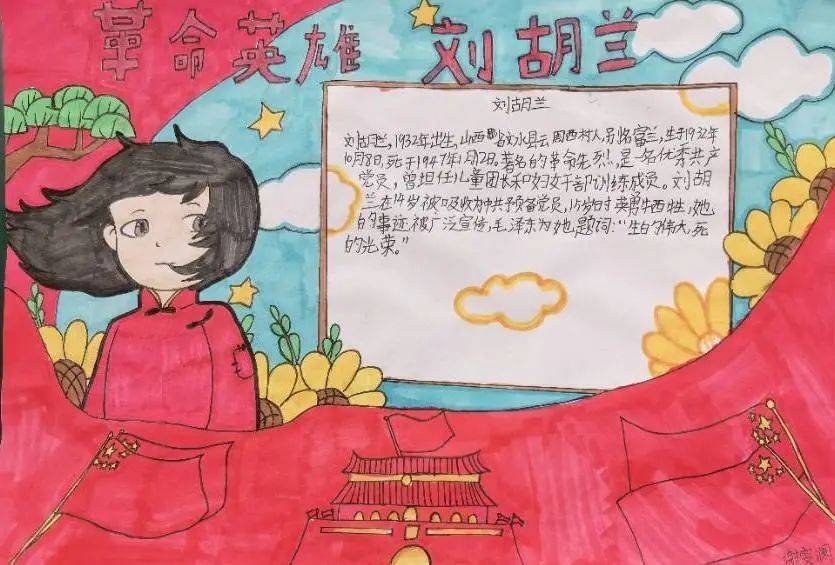 革命英雄 刘胡兰
刘胡兰
刘胡兰,1932年出生,山西省文水县云周西村人,别名富兰,生于1932年
10月8日,死于1947年1月12日。著名的革命先烈,是一名优秀共产
党员,曾担任儿童团长和妇女干部训练成员。刘胡
兰在14岁被吸收为中共予备党员,15岁时英勇牺牲,她
的事迹被广泛宣传,毛泽东为她题词:“生的伟大,死
的光荣。”